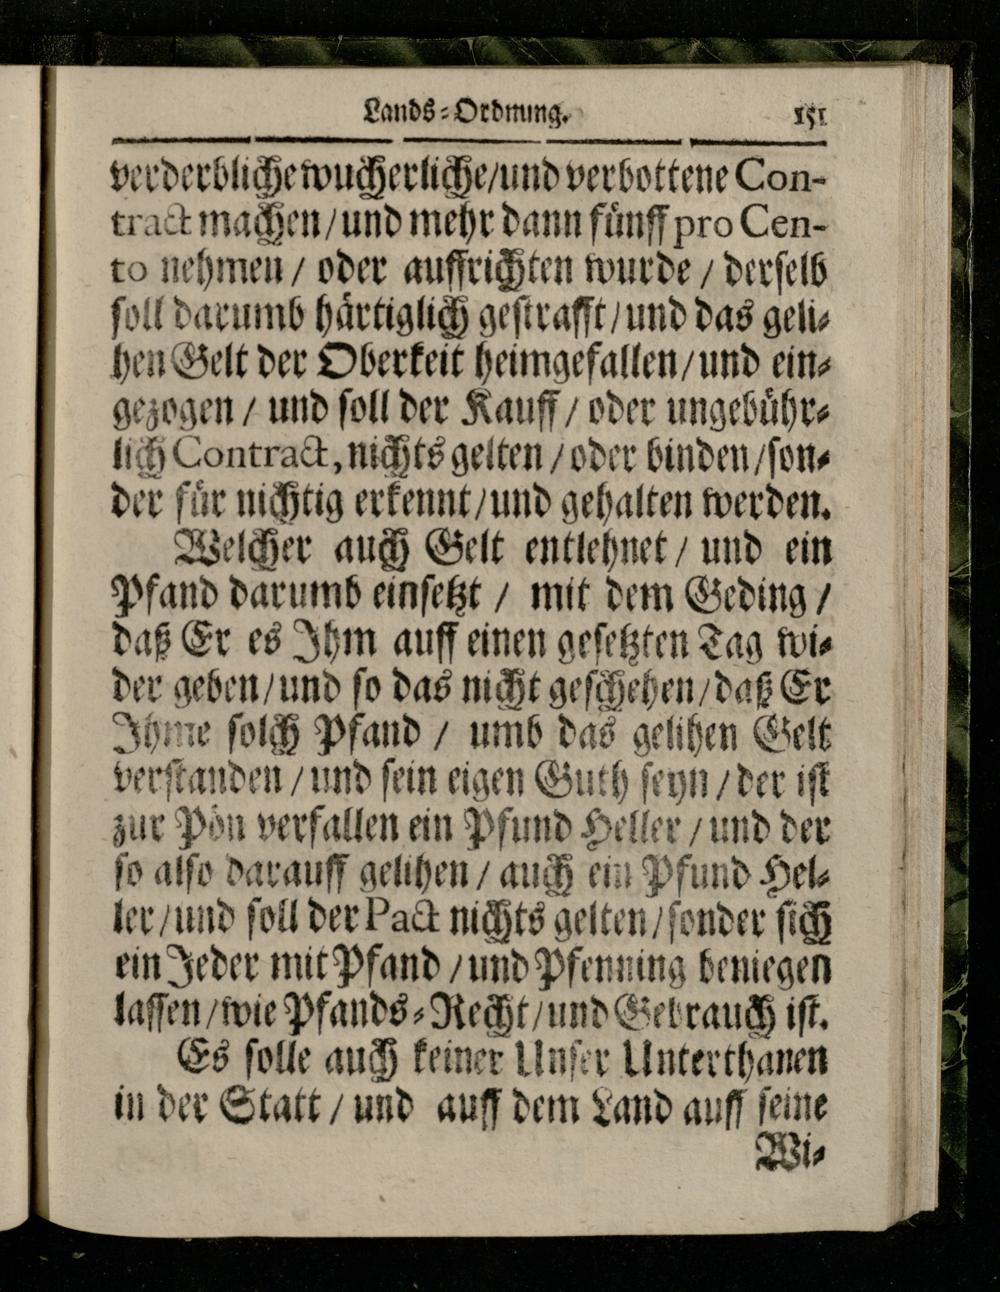 Lands-Ordnung. 151
verderbliche wucherliche/und verbottene Con-
tract machen/und mehr dann fünff pro Cen-
to nehmen / oder auffrichten wurde / derselb
soll darumb härtiglich gestrafft/und das geli-
hen Gelt der Oberkeit heimgefallen/und ein-
gezogen / und soll der Kauff / oder ungebühr-
lich Contract, nichts gelten / oder binden/son-
der für nichtig erkennt/und gehalten werden.
Welcher auch Gelt entlehnet / und ein
Pfand darumb einsetzt / mit dem Geding /
daß Er es Ihm auff einen gesetzten Tag wi-
der geben/und so das nicht geschehen/daß Er
Ihme solch Pfand / umb das gelihen Gelt
verstanden / und sein eigen Guth seyn / der ist
zur Pön verfallen ein Pfund Heller / und der
so also darauff gelihen / auch ein Pfund Hel-
ler/und soll der Pact nichts gelten/sonder sich
ein Jeder mit Pfand / und Pfenning beniegen
lassen/wie Pfands-Recht/und Gebrauch ist.
Es solle auch keiner Unser Unterthanen
in der Statt / und auff dem Land auff seine
Wi-